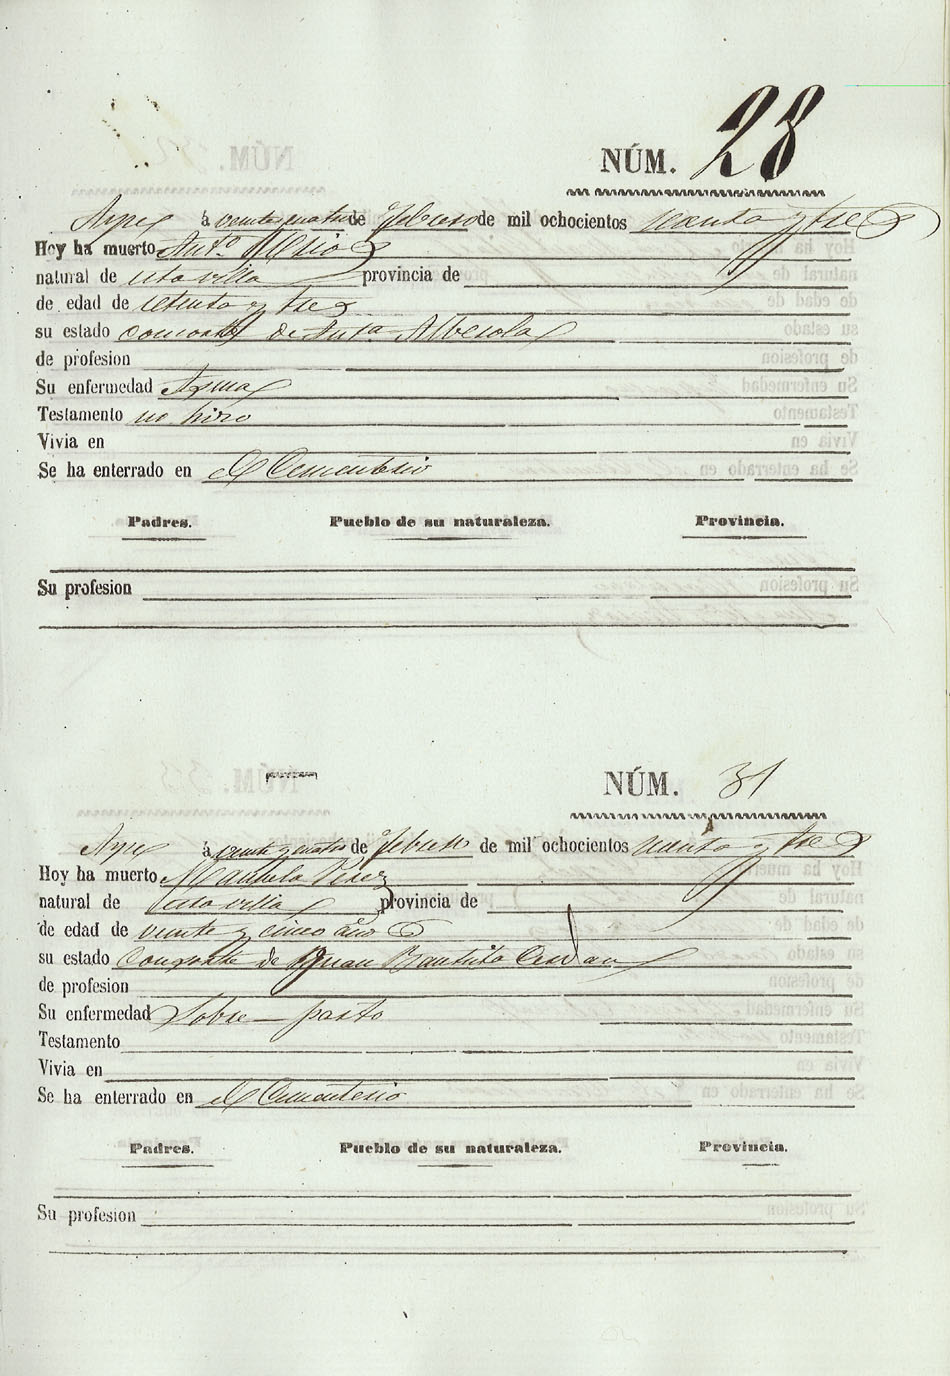 NÚM. 28
Aspe á veinte y cuatro de febrero de mil ochocientos y tres
Hoy ha muerto Antº
natural de esta villa provincia de
de edad de setenta y tres
su estado consorte de Antª Alberola
de profesion
Su enfermedad Asma
Testamento no hizo
Vivia en
Se ha enterrado en el Cementerio
Padres. Pueblo de su naturaleza. Provincia.
Su profesion
NÚM. 31
Aspe á veinte y cuatro de febrero de mil ochocientos y tres
Hoy ha muerto Manuela Perez
natural de esta villa provincia de
de edad de veinte y cinco años
su estado Consorte de Juan Bautista
de profesion
Su enfermedad Sobre-parto
Testamento
Vivia en
Se ha enterrado en el Cementerio
Padres. Pueblo de su naturaleza. Provincia.
Su profesion